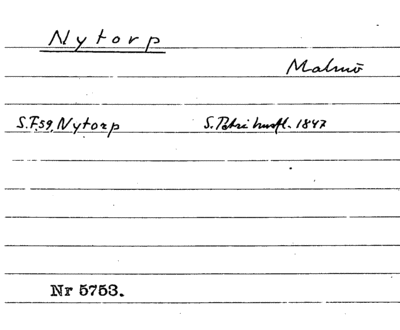 Nytorp
Malmö
S.F.59. Nytorp S. Petri husfl. 1847
Nr 5753.